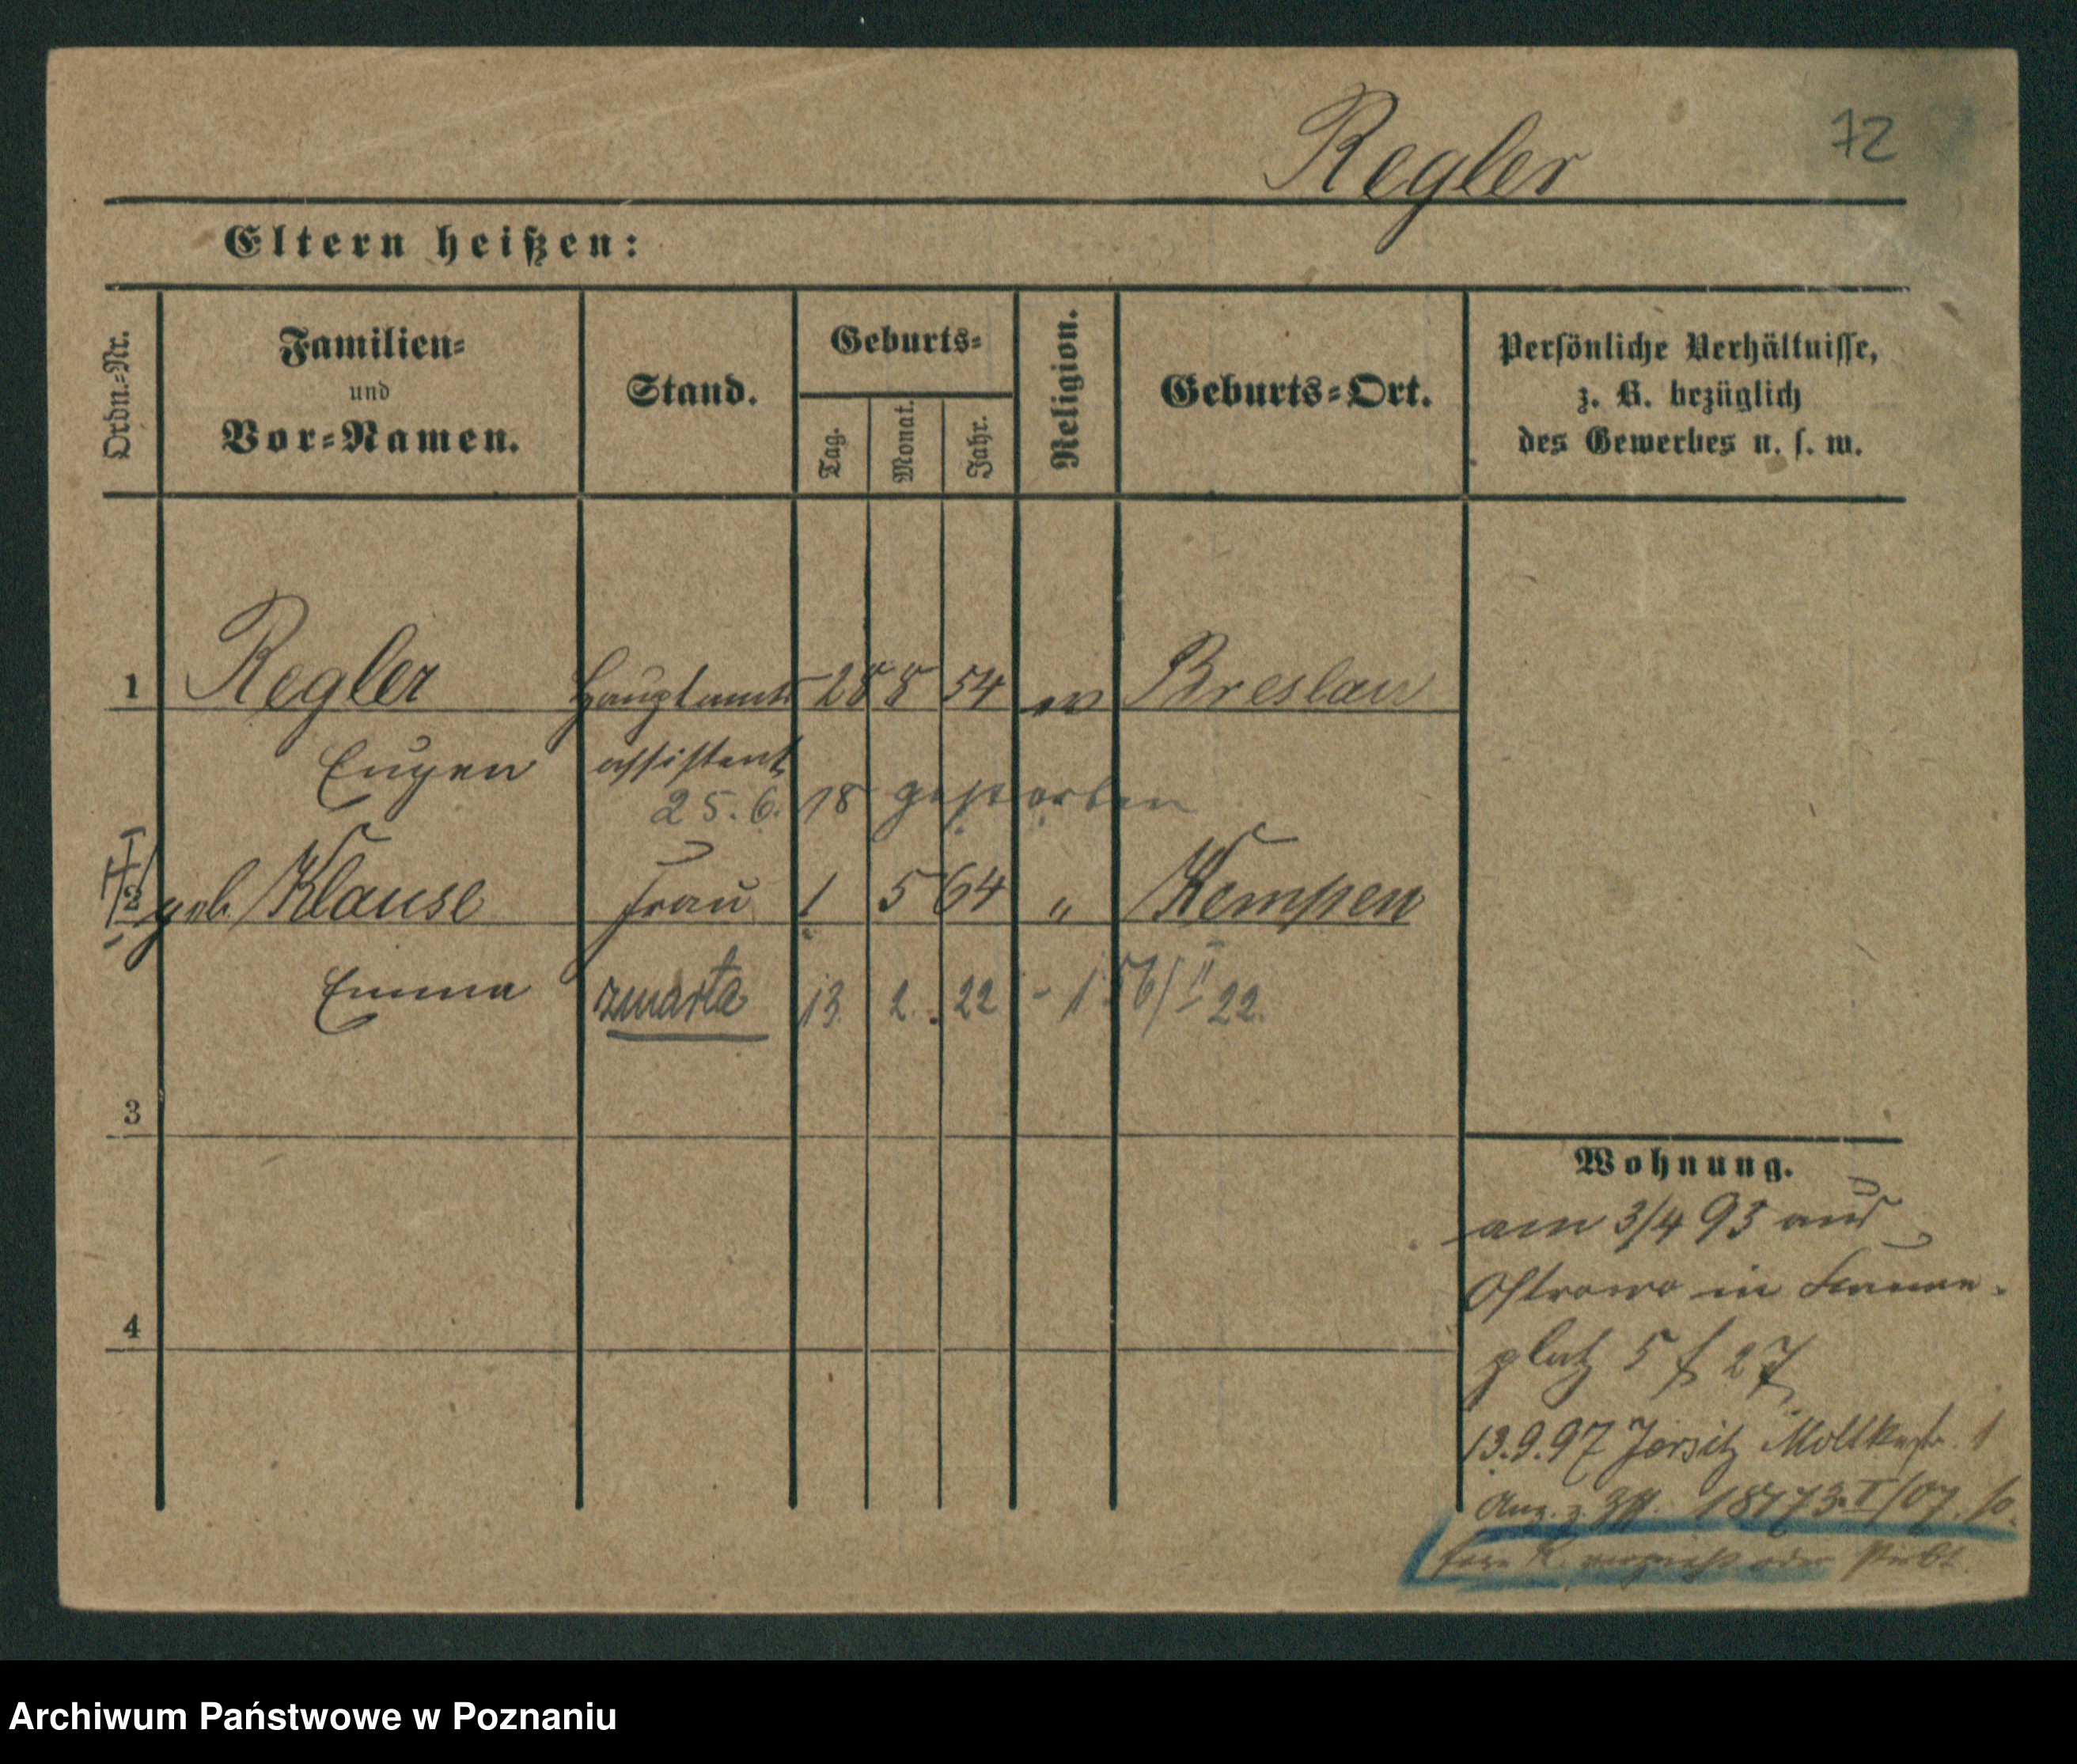 72
Regler
Eltern heißen:
Ordn.-Nr.
Familien-
und
Vor-Namen.
Stand.
Geburts-
Tag.
Monat.
Jahr.
Religion.
Geburts-Ort.
Persönliche Verhältnisse,
z. B. bezüglich
des Gewerbes u. s. w.
1 Regler Hauptamts 28 8 54 ev Breslau
Eugen assistent
25.6. 18 gestorben
2 geb Klause Frau 1 5 64 " Kempen
Emma zmarła 13. 2. 22 - 156/II 22.
3
4
Wohnung.
am 3/4 93 aus
Ostrowo in
platz 5 f 27
13.9.97 Jersitz Moltkestr. 1
18773.I/07.
oder stirbt.
Archiwum Państwowe w Poznaniu